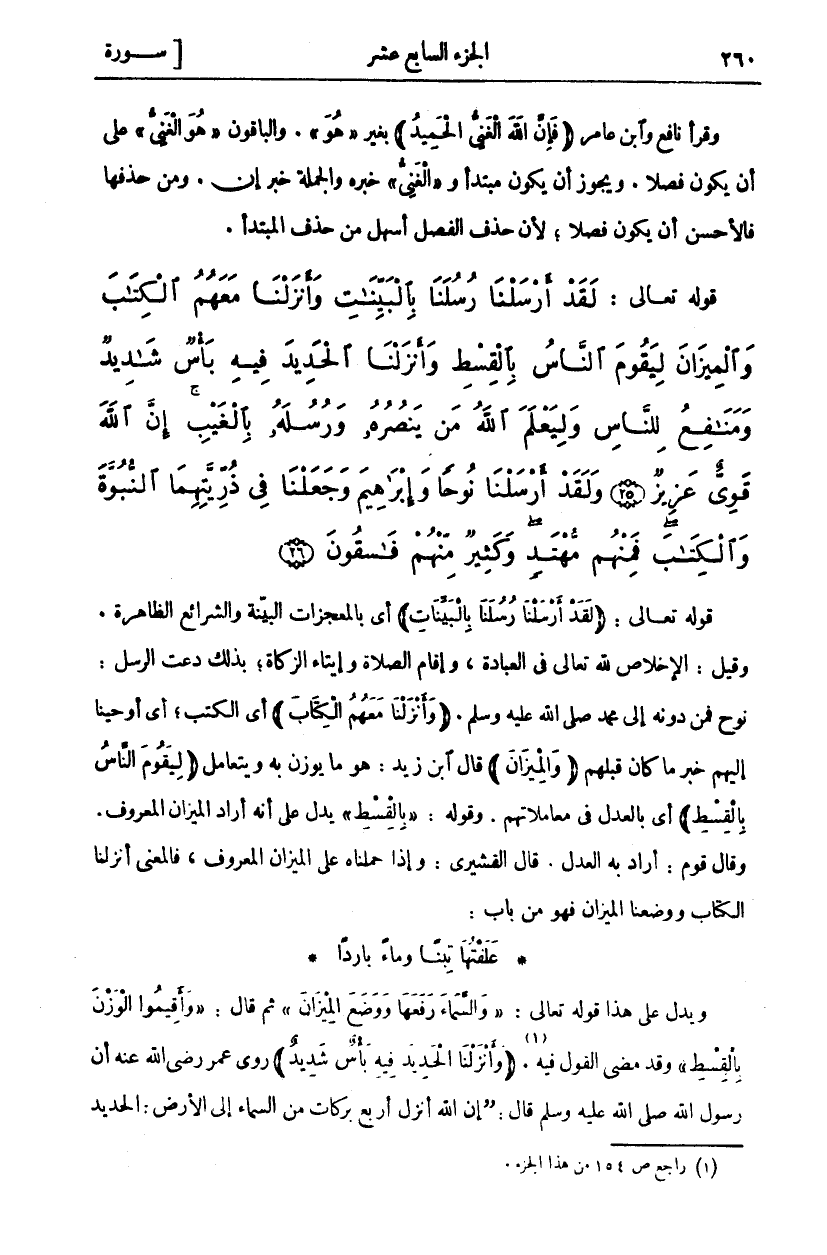 ٢٦٠ الجزء السابع عشر [ ســورة
وقرأ نافع وآبن عامر ﴿ فَإِنَّ اللهَ الْغَنِيُّ الْحَمِيدُ ﴾ بغير «هُوَ» . والباقون «هُوَ الْغَنِيُّ» على
أن يكون فصلا . ويجوز أن يكون مبتدأ و «الْغَنِيُّ» خبره والجملة خبر إن . ومن حذفها
فالأحسن أن يكون فصلا ؛ لأن حذف الفصل أسهل من حذف المبتدأ .
قوله تعــالى : لَقَدْ أَرْسَلْنَا رُسُلَنَا بِٱلْبَيِّنَـٰتِ وَأَنزَلْنَـا مَعَهُمُ ٱلْكِتَـٰبَ
وَٱلْمِيزَانَ لِيَقُومَ ٱلنَّـاسُ بِٱلْقِسْطِ وَأَنزَلْنَـا ٱلْحَدِيدَ فِيـهِ بَأْسٌ شَـدِيدٌ
وَمَنَـٰفِـعُ لِلنَّـاسِ وَلِيَعْلَمَ ٱللَّهُ مَن يَنصُرُهُۥ وَرُسُلَهُۥ بِٱلْغَيْبِ ۚ إِنَّ ٱللَّهَ
قَوِىٌّ عَزِيزٌ ﴿٢٥﴾ وَلَقَدْ أَرْسَلْنَا نُوحًا وَإِبْرَٰهِيمَ وَجَعَلْنَا فِى ذُرِّيَّتِهِمَا ٱلنُّبُوَّةَ
وَٱلْكِتَـٰبَ ۖ فَمِنْهُم مُّهْتَدٍ ۖ وَكَثِيرٌ مِّنْهُمْ فَـٰسِقُونَ ﴿٢٦﴾
قوله تعــالى : ﴿ لَقَدْ أَرْسَلْنَا رُسُلَنَا بِالْبَيِّنَاتِ ﴾ أى بالمعجزات البيّنة والشرائع الظاهرة .
وقيل : الإخلاص لله تعالى فى العبادة ، وإقام الصلاة وإيتاء الزكاة؛ بذلك دعت الرسل :
نوح فمن دونه إلى محمد صلى الله عليه وسلم . ﴿ وَأَنْزَلْنَا مَعَهُمُ الْكِتَابَ ﴾ أى الكتب ؛ أى أوحينا
إليهم خبر ما كان قبلهم ﴿ وَالْمِيزَانَ ﴾ قال آبن زيد : هو ما يوزن به ويتعامل ﴿ لِيَقُومَ النَّاسُ
بِالْقِسْطِ ﴾ أى بالعدل فى معاملاتهم . وقوله : «بِالْقِسْطِ» يدل على أنه أراد الميزان المعروف.
وقال قوم : أراد به العدل . قال القشيرى : وإذا حملناه على الميزان المعروف ، فالمعنى أنزلنا
الكتاب ووضعنا الميزان فهو من باب :
* عَلَفْتُهَا تِبْنًـا وماءً باردًا *
ويدل على هذا قوله تعالى : « وَالسَّمَاءَ رَفَعَهَا وَوَضَعَ الْمِيزَانَ » ثم قال : «وَأَقِيمُوا الْوَزْنَ
بِالْقِسْطِ» وقد مضى القول فيه (١) . ﴿ وَأَنْزَلْنَا الْحَدِيدَ فِيهِ بَأْسٌ شَدِيدٌ ﴾ روى عمر رضى الله عنه أن
رسول الله صلى الله عليه وسلم قال : "إن الله أنزل أربع بركات من السماء إلى الأرض : الحديد
(١) راجع ص ١٥٤ من هذا الجزء .